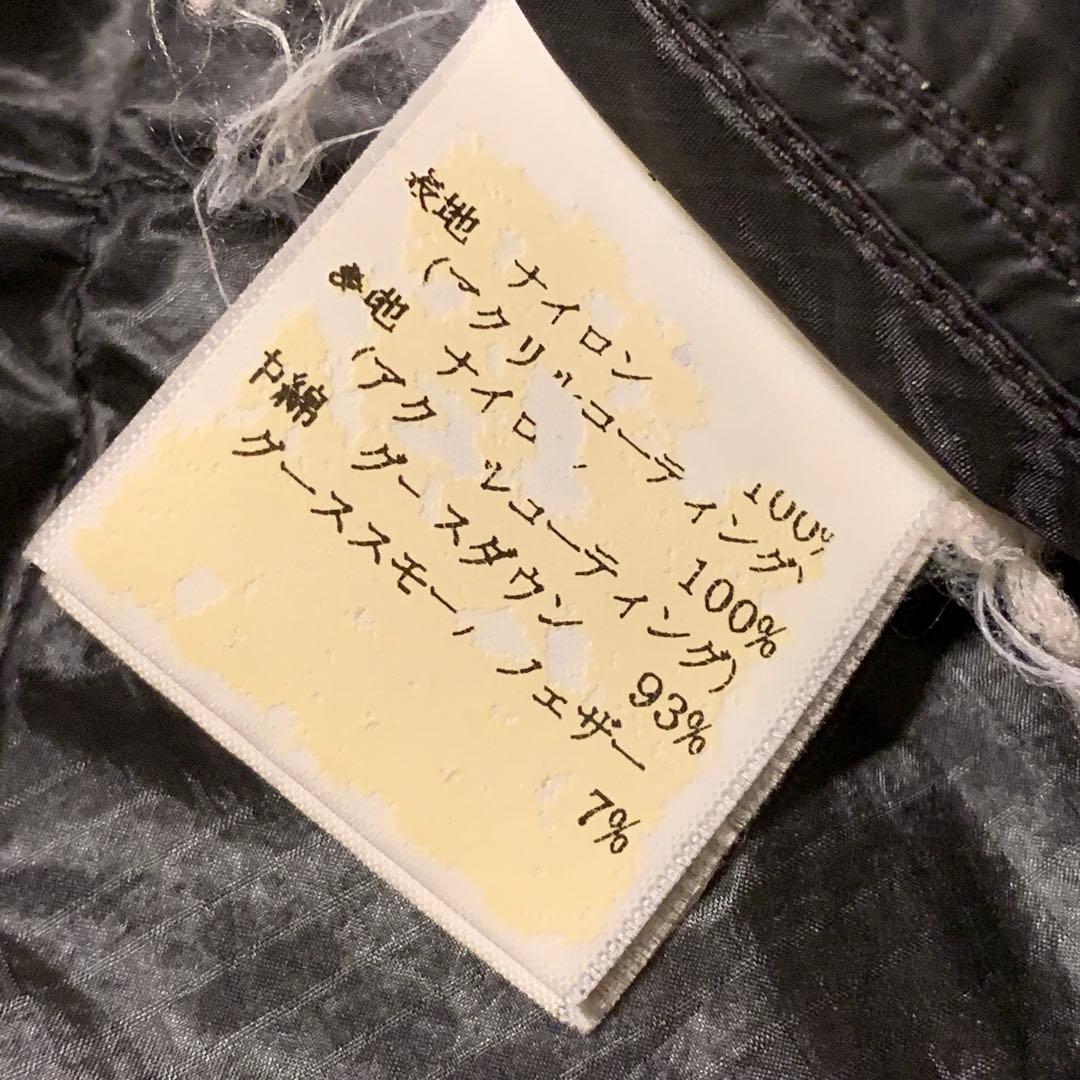 表地 ナイロン 100%
(アクリルコーティング)
裏地 ナイロン 100%
(アクリルコーティング)
中綿 グースダウン 93%
グーススモールフェザー 7%